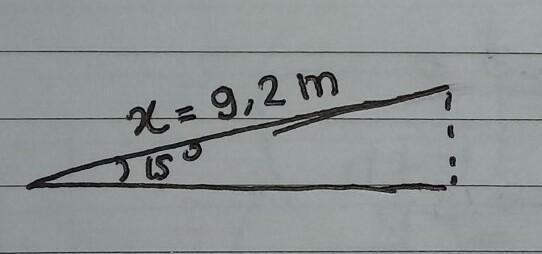 x = 9,2 m
15°